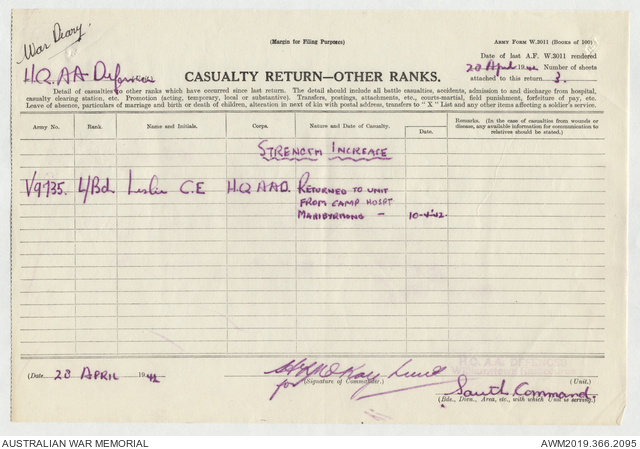 War Diary.
(Margin for Filing Purposes)
ARMY FORM W.3011 (BOOKS OF 100)
Date of last A.F. W.3011 rendered
H.Q. AA Defences
20 April 1942 Number of sheets
CASUALTY RETURN—OTHER RANKS.
attached to this return 3.
Detail of casualties to other ranks which have occurred since last return. The detail should include all battle casualties, accidents, admission to and discharge from hospital,
casualty clearing station, etc. Promotion (acting, temporary, local or substantive). Transfers, postings, attachments, etc., courts-martial, field punishment, forfeiture of pay, etc.
Leave of absence, particulars of marriage and birth or death of children, alteration in next of kin with postal address, transfers to "X" List and any other items affecting a soldier's service.
Army No. Rank. Name and Initials. Corps. Nature and Date of Casualty. Date. Remarks. (In the case of casualties from wounds or
disease, any available information for communication to
relatives should be stated.)
STRENGTH INCREASE
V9735. L/Bdr Leslie C.E H.Q. AAD. RETURNED TO UNIT
FROM CAMP HOSPT
MARIBYRNONG — 10-4-42.
(Date 20 APRIL 1942
for (Signature of Commander.) Lieut
H.Q. A.A. DEFENCES
(Unit.)
South Command.
(Bde., Divn., Area, etc., with which Unit is serving.)
AUSTRALIAN WAR MEMORIAL AWM2019.366.2095